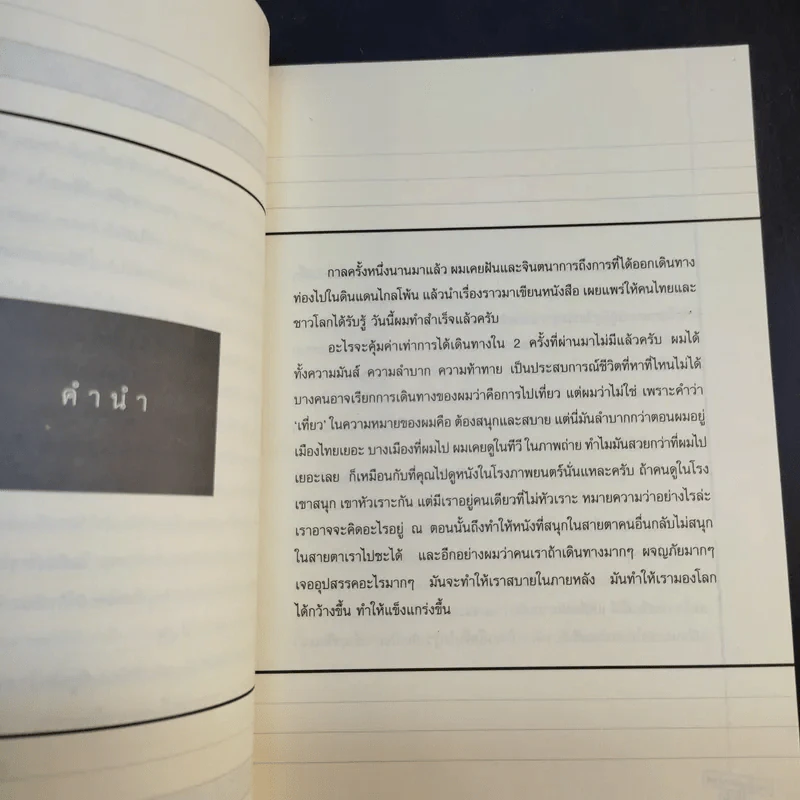 คำนำ
กาลครั้งหนึ่งนานมาแล้ว ผมเคยฝันและจินตนาการถึงการที่ได้ออกเดินทาง
ท่องไปในดินแดนไกลโพ้น แล้วนำเรื่องราวมาเขียนหนังสือ เผยแพร่ให้คนไทยและ
ชาวโลกได้รับรู้ วันนี้ผมทำสำเร็จแล้วครับ
อะไรจะคุ้มค่าเท่าการได้เดินทางใน 2 ครั้งที่ผ่านมาไม่มีแล้วครับ ผมได้
ทั้งความมันส์ ความลำบาก ความท้าทาย เป็นประสบการณ์ชีวิตที่หาที่ไหนไม่ได้
บางคนอาจเรียกการเดินทางของผมว่าคือการไปเที่ยว แต่ผมว่าไม่ใช่ เพราะคำว่า
‘เที่ยว’ ในความหมายของผมคือ ต้องสนุกและสบาย แต่นี่มันลำบากกว่าตอนผมอยู่
เมืองไทยเยอะ บางเมืองที่ผมไป ผมเคยดูในทีวี ในภาพถ่าย ทำไมมันสวยกว่าที่ผมไป
เยอะเลย ก็เหมือนกับที่คุณไปดูหนังในโรงภาพยนตร์นั่นแหละครับ ถ้าคนดูในโรง
เขาสนุก เขาหัวเราะกัน แต่มีเราอยู่คนเดียวที่ไม่หัวเราะ หมายความว่าอย่างไรล่ะ
เราอาจจะคิดอะไรอยู่ ณ ตอนนั้นถึงทำให้หนังที่สนุกในสายตาคนอื่นกลับไม่สนุก
ในสายตาเราไปซะได้ และอีกอย่างผมว่าคนเราถ้าเดินทางมากๆ ผจญภัยมากๆ
เจออุปสรรคอะไรมากๆ มันจะทำให้เราสบายในภายหลัง มันทำให้เรามองโลก
ได้กว้างขึ้น ทำให้แข็งแกร่งขึ้น